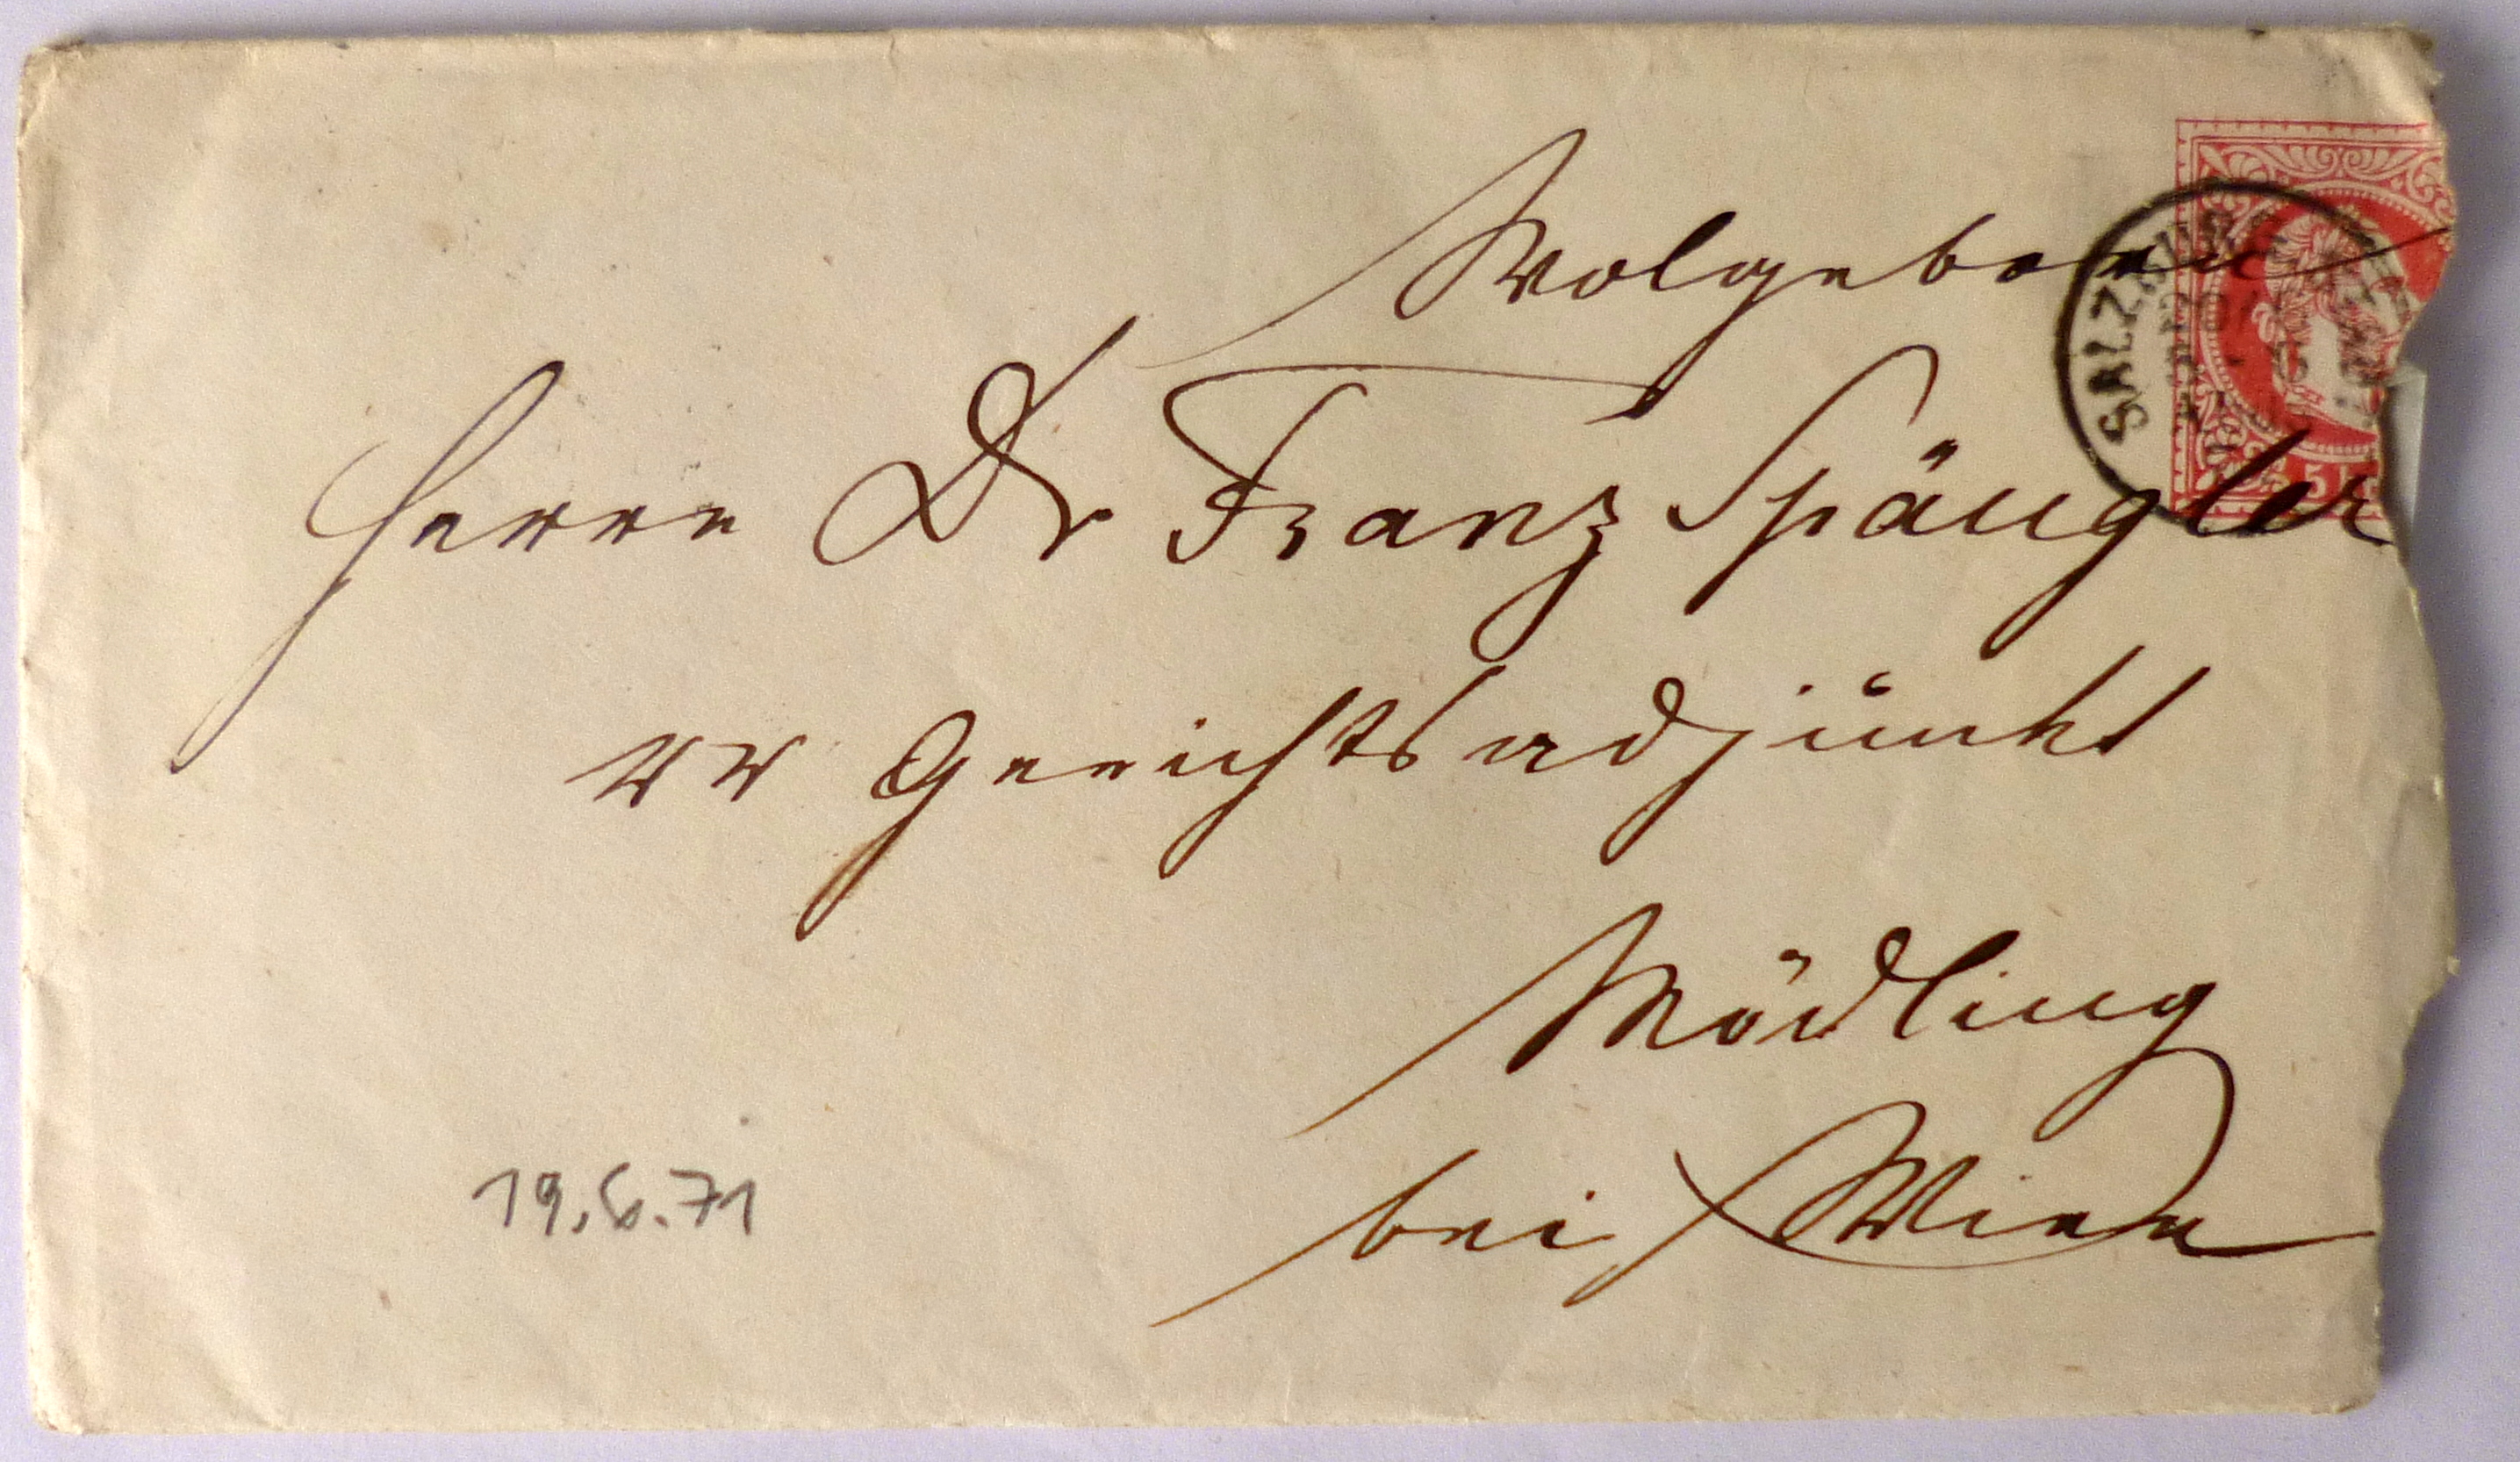 Wolgeboren
Herrn Dr Franz Spängler
kk Gerichtsadjunkt
Mödling
bei Wien
19.6.71
SALZBURG
5